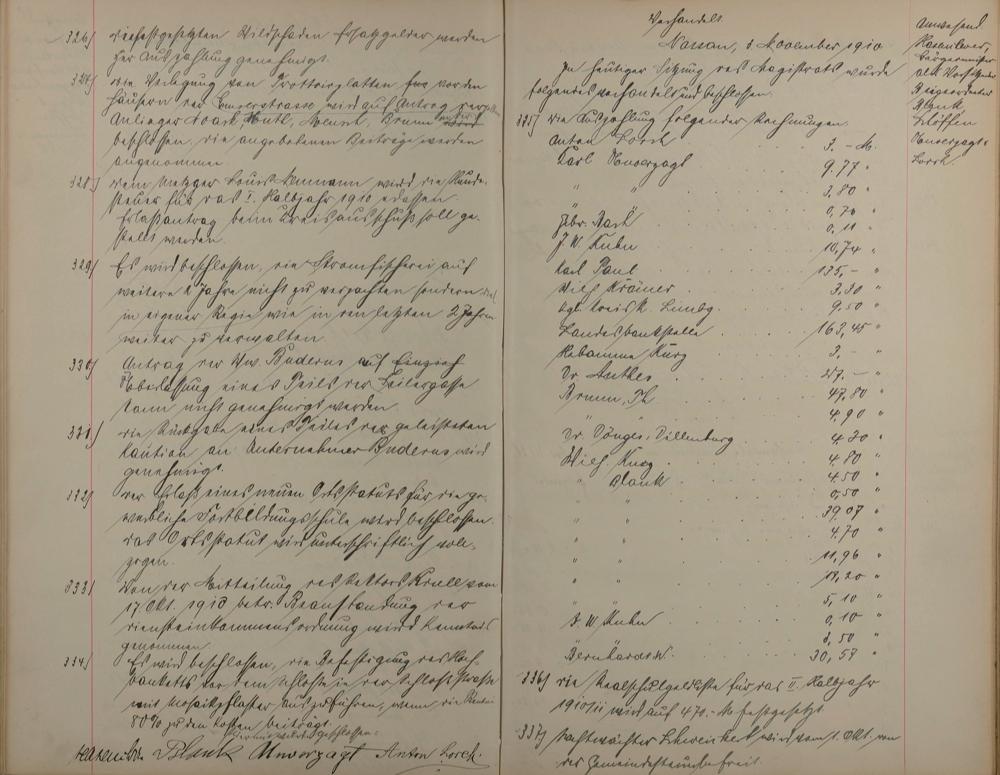 326) die festgesetzten Wildschaden Ersatzgelder werden
zur Auszahlung genehmigt.
327) die Verlegung von Trottoirplatten vor den
Häusern der Emserstrasse wird auf Antrag der
Anlieger
beschlossen, die angebotenen Beiträge werden
angenommen
328) dem Metzger Louis wird die Hunde-
steuer für das I. Halbjahr 1910 erlassen
Erlaßantrag beim Kreisausschuß soll ge-
stellt werden.
329) Es wird beschlossen, die Stromfischerei auf
weitere 2 Jahre nicht zu verpachten sondern
in eigener Regie wie in den letzten 2 Jahren
weiter zu verwalten.
330) Antrag der Ww. Buderus auf
Überlassung eines Teils der Feilergasse
kann nicht genehmigt werden.
331) die Rückgabe eines Teiles der geleisteten
Kaution an Unternehmer Buderus wird
genehmigt.
332) der Erlaß eines neuen Ortsstatuts für die ge-
werbliche Fortbildungsschule wird beschlossen
das Ortsstatut wird unterschriftlich voll-
zogen.
333) Von der Mitteilung des Rektors Krull vom
17 Okt. 1910 betr. Beanstandung der
Diensteinkommensordnung wird Kenntnis
genommen.
334) Es wird beschlossen, die Befestigung des
Banketts vor dem Schlosse in der Schloßstrasse
mit Mosaikpflaster auszuführen, wenn
80% zu den Kosten beiträgt.
geschlossen.
Hasenclever Plank Unverzagt Anton Lorch.
Verhandelt
Nassau, November 1910
In heutiger Sitzung des Magistrats wurde
folgendes verhandelt und beschlossen.
335) die Auszahlung folgender Rechnungen.
Anton Lorch 3. – M.
Karl Unverzagt 9.77 "
" " 3.80 "
" 0,70 "
Gebr. 0,11 "
J. W. Kuhn 10,74 "
Karl Paul 135,– "
Wilh. Krämer 3.30 "
Kgl. Kreisk. Limbg. 9.50 "
Landesbankstelle 163,45 "
Hebamme Kurz 3. – "
Dr. Anthes 27. – "
Bruun, Th 47,80 "
" " 4,90 "
Dr. Dönges, Dillenburg 4.30 "
Wilh. Kurz 4.80 "
" Plank 4.50 "
" " 0,50 "
" " 39,07 "
" " 4.70 "
" " 11,96 "
" " 12,20 "
" " 5,10 "
J. W. Kuhn 0,10 "
3,50 "
30,59 "
336) die Realschulgeldliste für das II. Halbjahr
1910/11 wird auf 470.– M festgesetzt
337) Nachtwächter wird vom 1. Okt. von
der Gemeindesteuer befreit.
Anwesend
Hasenclever,
Bürgermeister
als Vorsitzender
Beigeordneter
Plank
Unverzagt.
Lorch.